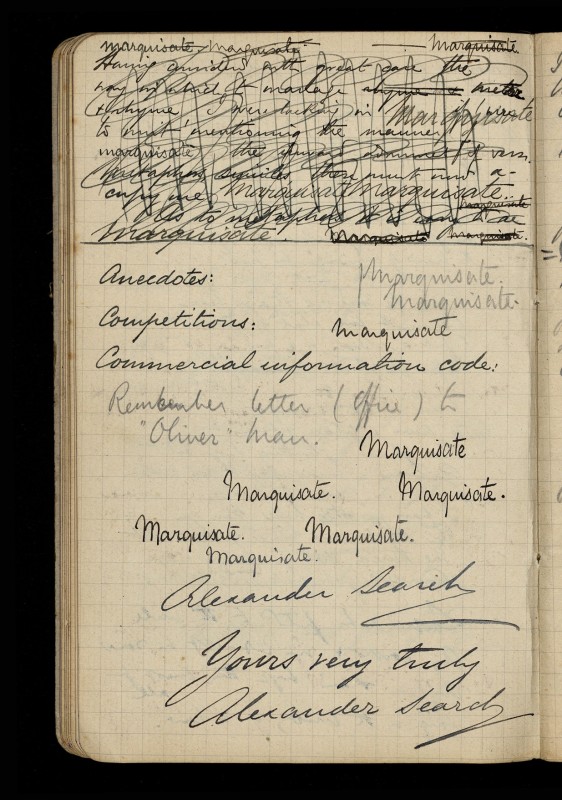 marquisate Marquisate. — Marquisate.
Having considered with great care the
metre
& rhyme Marquisate
to mentioning the manner
marquisate the of verse.
similes there must now
me. Marquisate Marquisate.
Marquisate
As to metaphor
Marquisate. Marquisate Marquisate.
Anecdotes: Marquisate.
Marquisate.
Competitions: Marquisate
Commercial information code:
Remember letter (office) to
"Oliver" man.
Marquisate
Marquisate. Marquisate.
Marquisate. Marquisate.
Marquisate.
Alexander Search
Yours very truly
Alexander Search